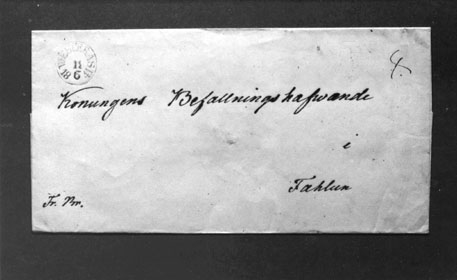 11
6
Konungens Befallningshafwande
i
Fahlun
Fr. Br.